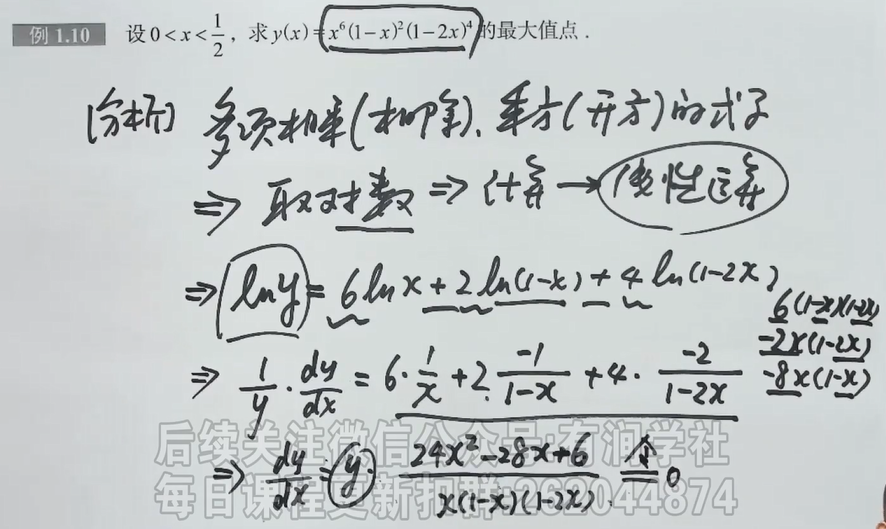 例 1.10 设 0<x<1/2，求 y(x)=x⁶(1-x)²(1-2x)⁴ 的最大值点．
[分析] 多项相乘(相除)、乘方(开方)的式子
⇒ 取对数 ⇒ 计算 → 线性运算
⇒ ln y = 6 ln x + 2 ln(1-x) + 4 ln(1-2x)
6(1-x)(1-2x)
-2x(1-2x)
-8x(1-x)
⇒ 1/y · dy/dx = 6·1/x + 2·-1/1-x + 4·-2/1-2x
⇒ dy/dx = y· 24x²-28x+6/x(1-x)(1-2x) 令= 0
后续关注微信公众号:有润学社